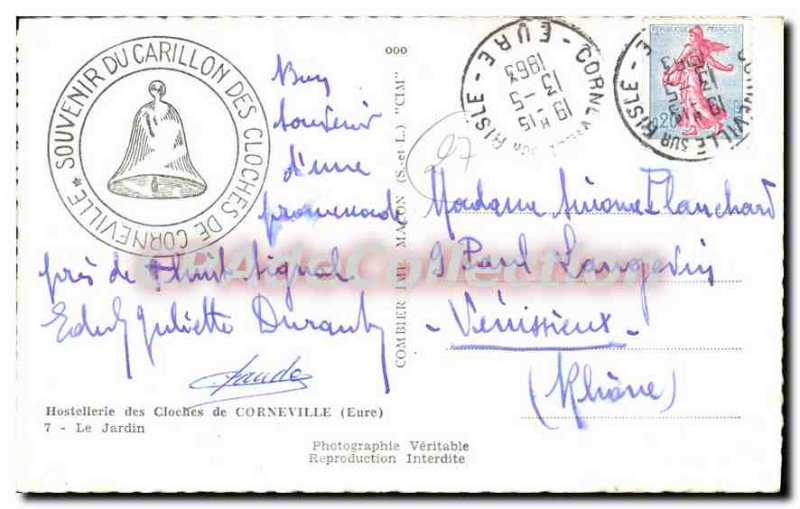 SOUVENIR DU CARILLON DES CLOCHES DE CORNEVILLE *
ooo
CORNEVILLE SUR RISLE - EURE -
19 H 15
13 - 5
1963
REPUBLIQUE FRANÇAISE
0,20
27
Bon
souvenir
d'une
promenade
près de
Juliette
Claude
Madame Simone Blanchard
9 Paul Langevin
- Vénissieux -
(Rhône)
COMBIER IMP. MACON (S.-et-L.) "CIM"
CPA de Collection
Hostellerie des Cloches de CORNEVILLE (Eure)
7 - Le Jardin
Photographie Véritable
Reproduction Interdite